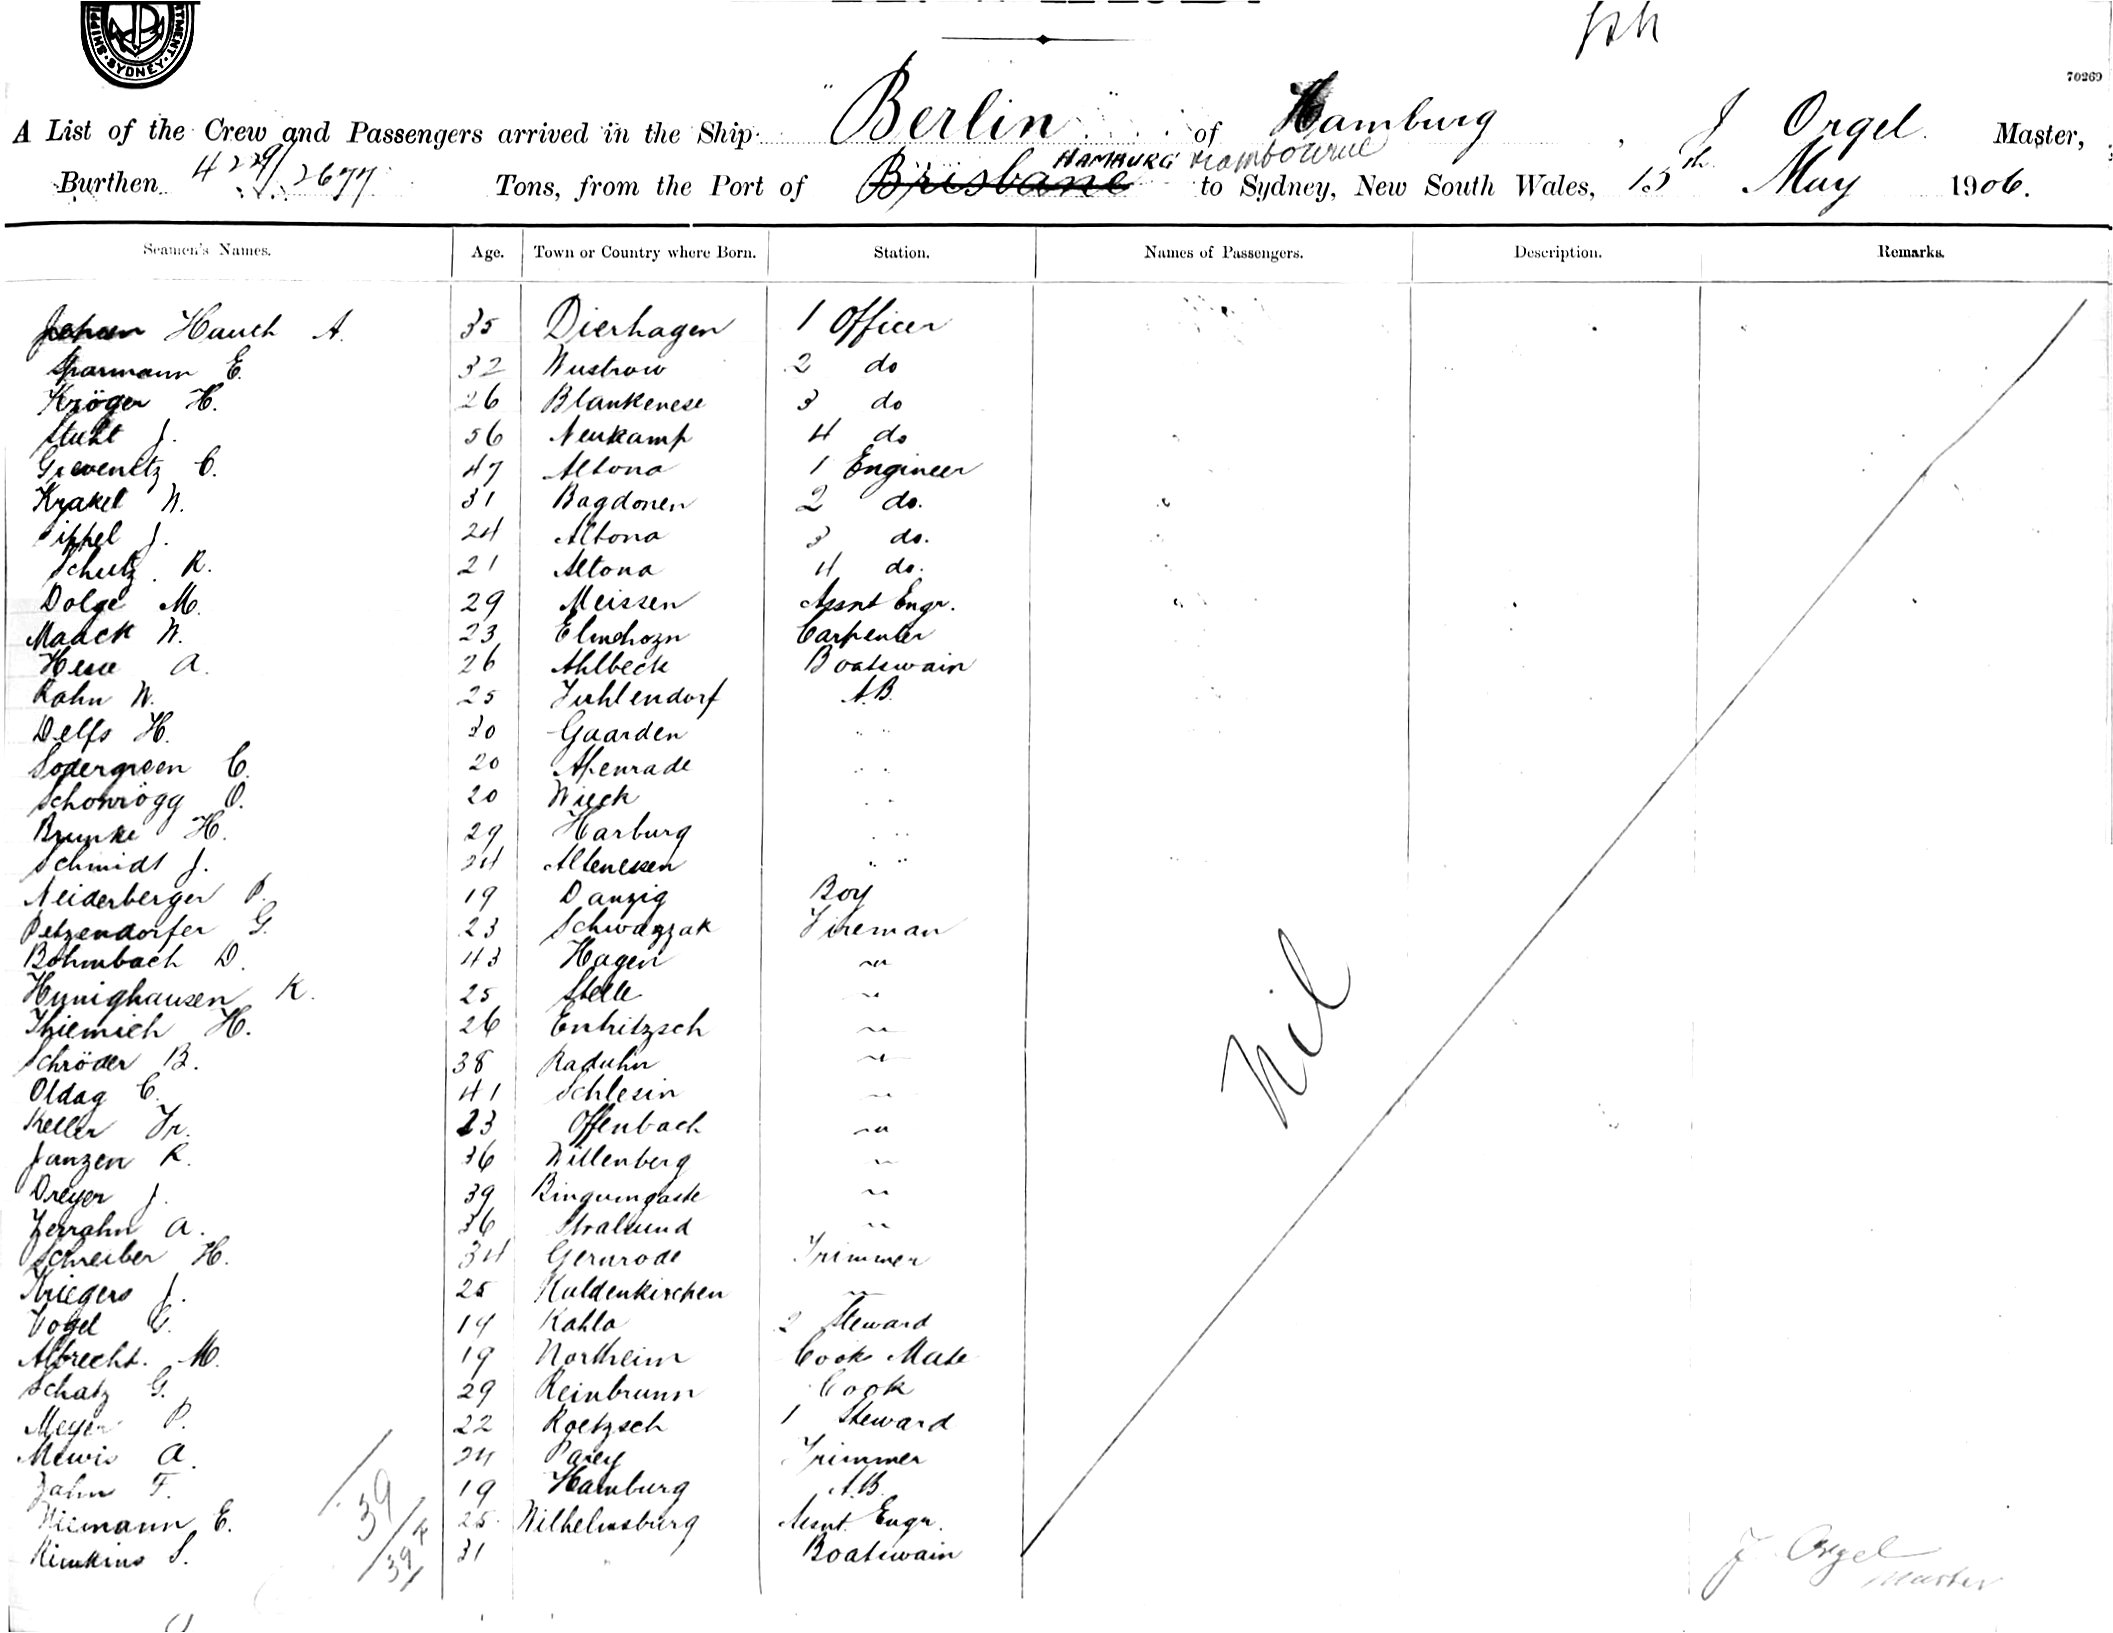 SHIPPI
TMENT
SYDNEY
70269
A List of the Crew and Passengers arrived in the Ship "Berlin" of Hamburg, J Orgel Master,
HAMBURG
Burthen 4229/2677 Tons, from the Port of Brisbane to Sydney, New South Wales, 15th May 1906.
Seamen's Names. Age. Town or Country where Born. Station. Names of Passengers. Description. Remarks.
Hauch A. 35 Dierhagen 1 Officer
Sparmann E. 32 Wustrow 2 do
Kröger H. 26 Blankenese 3 do
Stuht J. 56 Neukamp 4 do
Grevenitz C. 47 Altona 1 Engineer
Krakel W. 31 Bagdonen 2 do.
Sippel J. 24 Altona 3 do.
Schutz R. 21 Altona 4 do.
Dolge M. 29 Meissen Assnt Engr.
Maack W. 23 Elmshorn Carpenter
Hesse A. 26 Ahlbeck Boatswain
Rahn W. 25 Fuhlendorf A.B.
Delfs H. 30 Gaarden " "
Sodergreen C. 20 Apenrade " "
Schonrögg O. 20 Wieck " "
Brunke H. 29 Harburg " "
Schmidt J. 24 Altenessen " "
Neiderberger P. 19 Danzig Boy
Petzendorfer G. 23 Schwarzak Fireman
Bohmbach D. 43 Hagen "
Hunighausen K. 25 Steele "
Thiemich H. 26 Enhitzsch "
Schröder B. 38 Raduhn "
Oldag C. 41 Schlesin "
Keller Fr. 23 Offenbach "
Janzen R. 36 Willenberg "
Dreyer J. 39 Bingumgaste "
Zerrahn A. 36 Stralsund "
Schreiber H. 34 Gernrode Trimmer
Kriegers J. 25 Kaldenkirchen "
Vogel G. 19 Kahla 2 Steward
Albrecht. M. 19 Northeim Cooks Mate
Schatz G. 29 Reinbrunn Cook
Meyer P. 22 Roetzsch 1 Steward
Mewis A. 24 Parey Trimmer
Jahn F. 19 Hamburg A.B.
Niemann E. 25 Wilhelmsburg Assnt. Engr.
Rimkins S. 31 " Boatswain
Nil
39
39
J. Orgel
Master